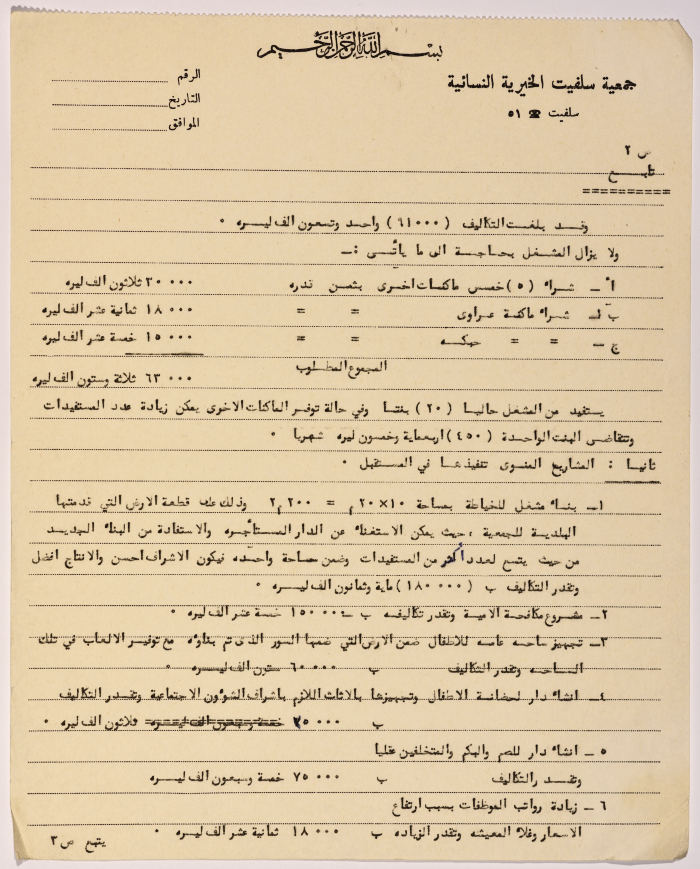 بسم الله الرحمن الرحيم
جمعية سلفيت الخيرية النسائية
سلفيت ☎ ٥١
الرقم
التاريخ
الموافق
ص ٢
تابع
==========
وقد بلغت التكاليف ( ٩١٠٠٠ ) واحد وتسعون الف ليره ٠
ولا يزال المشغل بحاجة الى ما يأتي :ـ
أ ـ شراء ( ٥ ) خمس ماكنات اخرى بثمن قدره ٣٠٠٠٠ ثلاثون الف ليره
ب ـ شراء ماكنة عراوى = = ١٨٠٠٠ ثمانية عشر الف ليره
ج ـ = = حبكه = = ١٥٠٠٠ خمسة عشر الف ليره
المجموع المطلوب
٦٣٠٠٠ ثلاثة وستون الف ليره
يستفيد من المشغل حاليا ( ٢٠ ) بنتا وفي حالة توفر الماكنات الاخرى يمكن زيادة عدد المستفيدات
وتتقاضى البنت الواحدة ( ٤٥٠ ) اربعماية وخمسون ليره شهريا ٠
ثانيا : المشاريع المنوى تنفيذها في المستقبل ٠
١ـ بناء مشغل للخياطة بمساحة ١٠×٢٠م = ٢٠٠م٢ وذلك على قطعة الارض التي قدمتها
البلدية للجمعية ، حيث يمكن الاستغناء عن الدار المستأجره والاستفادة من البناء الجديد
من حيث يتسع لعدد أكثر من المستفيدات وضمن مساحة واحده فيكون الاشراف احسن والانتاج افضل
وتقدر التكاليف ب ( ١٨٠٠٠٠ ) ماية وثمانون الف ليره ٠
٢ـ مشروع مكافحة الامية وتقدر تكاليفه ب ١٥٠٠٠ خمسة عشر الف ليره ٠
٣ـ تجهيز ساحه عامه للاطفال ضمن الارض التي ضمها السور الذى تم بناؤه مع توفير الالعاب في تلك
الساحه وتقدر التكاليف ب ٦٠٠٠٠ ستون الف ليره ٠
٤ـ انشاء دار لحضانة الاطفال وتجهيزها بالاثاث اللازم باشراف الشؤون الاجتماعية وتقدر التكاليف
ب ٠٠٠ خمسة وسبعون الف ليره ثلاثون الف ليره ٠
٥ ـ انشاء دار للصم والبكم والمتخلفين عقليا
وتقدر التكاليف ب ٧٥٠٠٠ خمسة وسبعون الف ليره
٦ ـ زيادة رواتب الموظفات بسبب ارتفاع
الاسعار وغلاء المعيشه وتقدر الزياده ب ١٨٠٠٠ ثمانية عشر الف ليره ٠
يتبع ص ٣